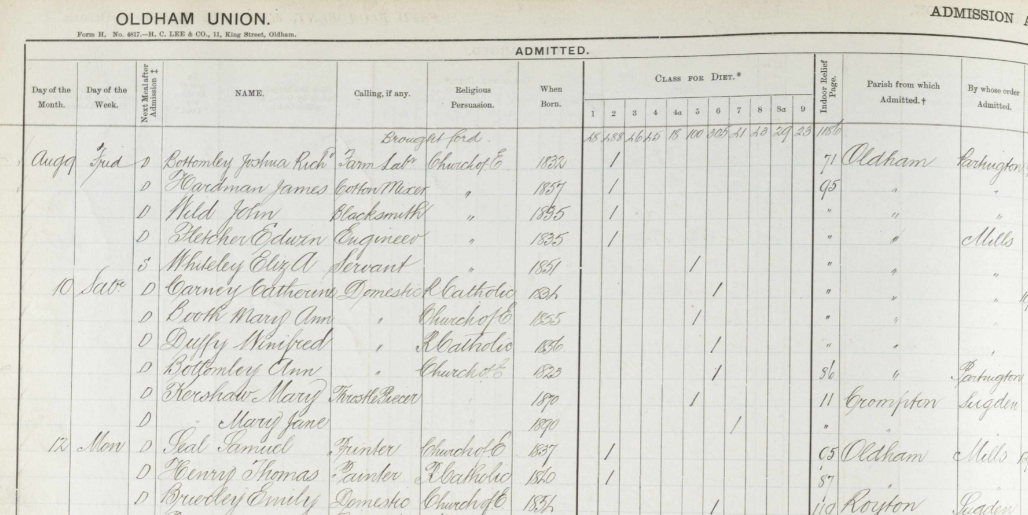 OLDHAM UNION. ADMISSION A
Form H. No. 4617.—H. C. LEE & CO., 11, King Street, Oldham.
ADMITTED.
Day of the Month. Day of the Week. Next Meal after Admission ‡ NAME. Calling, if any. Religious Persuasion. When Born. CLASS FOR DIET.* Indoor Relief Page. Parish from which Admitted.† By whose order Admitted.
1 2 3 4 4a 5 6 7 8 8a 9
Brought ford 18 100 305 41 29 23 1186
Aug 9 Frid D Bottomley Joshua Richd Farm Labr Church of E 1832 / 71 Oldham Partington
D Hardman James Cotton Mixer „ 1857 / 95 „ „
D Wild John Blacksmith „ 1855 / „ „ „
D Fletcher Edwin Engineer „ 1835 / „ „ Mills
S Whiteley Eliz A Servant „ 1851 / „ „ „
10 D Carney Catherine Domestic R Catholic / „ „ „
D Booth Mary Ann „ Church of E 1835 / „ „
D Duffy Winifred „ R Catholic 1836 / „ „
D Bottomley Ann „ Church of E 1823 / 86 „ Partington
D Kershaw Mary Throstle Piecer 1870 / 11 Crompton Sugden
D „ Mary Jane 1890 / „ „
12 Mon D Seal Samuel Church of E 1837 / 65 Oldham Mills
D Henry Thomas Painter R Catholic 1860 / 87
D Brierley Emily Domestic Church of E / 110 Royton Sugden